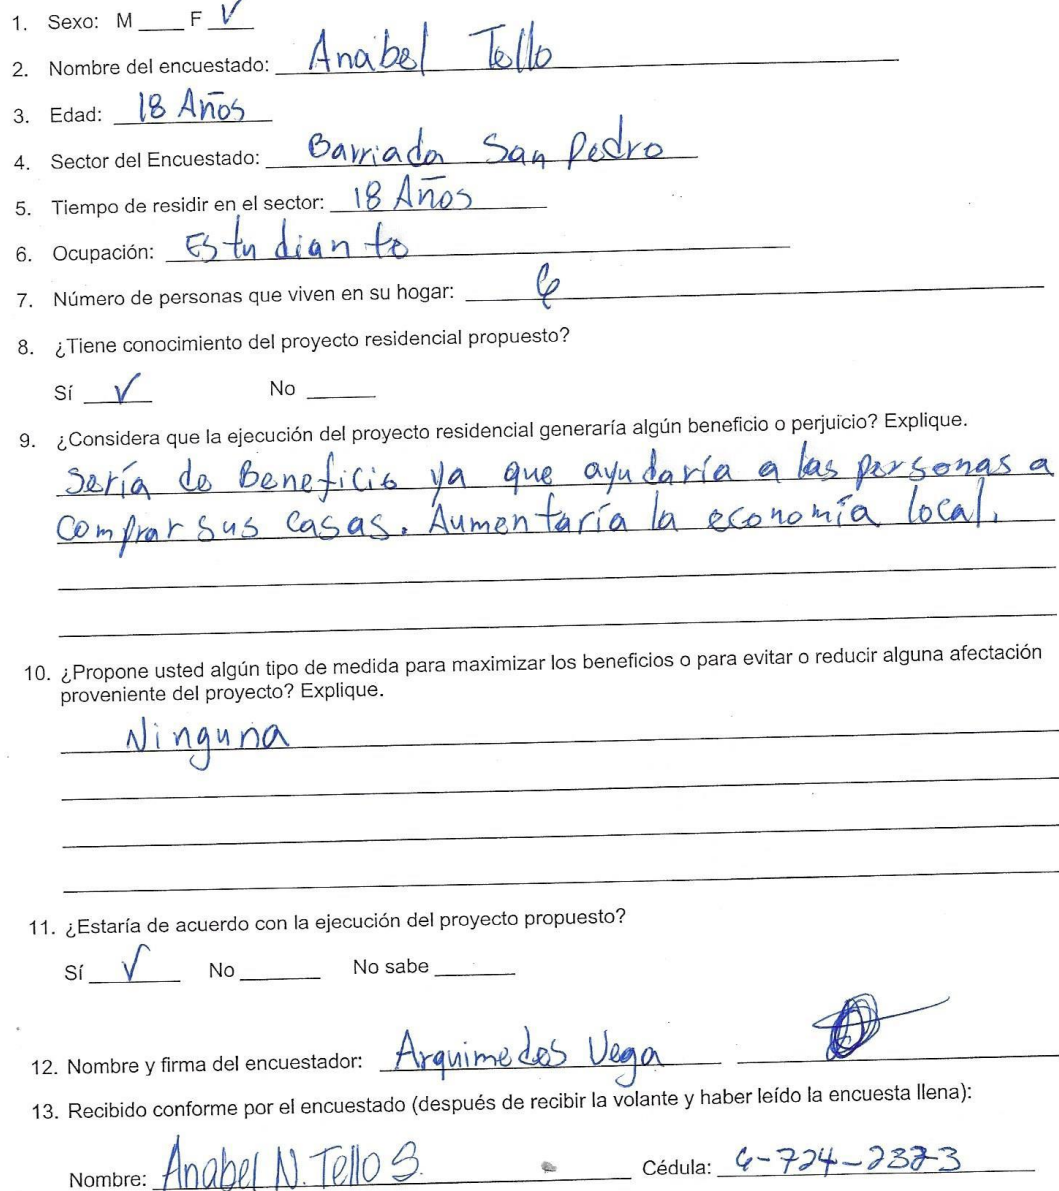 1. Sexo: M ____ F √
2. Nombre del encuestado: Anabel Tello
3. Edad: 18 Años
4. Sector del Encuestado: Barriada San Pedro
5. Tiempo de residir en el sector: 18 Años
6. Ocupación: Estudiante
7. Número de personas que viven en su hogar:
8. ¿Tiene conocimiento del proyecto residencial propuesto?
Sí √ No ____
9. ¿Considera que la ejecución del proyecto residencial generaría algún beneficio o perjuicio? Explique.
Sería de Beneficio ya que ayudaría a las personas a
comprar sus casas. Aumentaría la economía local.
10. ¿Propone usted algún tipo de medida para maximizar los beneficios o para evitar o reducir alguna afectación
proveniente del proyecto? Explique.
Ninguna
11. ¿Estaría de acuerdo con la ejecución del proyecto propuesto?
Sí √ No ____ No sabe ____
12. Nombre y firma del encuestador: Arquimedes Vega
13. Recibido conforme por el encuestado (después de recibir la volante y haber leído la encuesta llena):
Nombre: Anabel N. Tello S. Cédula: